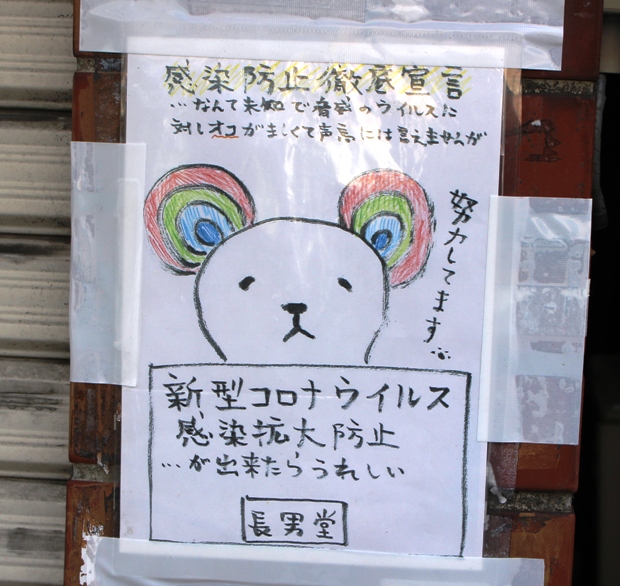 感染防止徹底宣言
…なんて未知で脅威のウイルスに
対しオコがましくて声高には言えませんが
努力してます
新型コロナウイルス
感染拡大防止
…が出来たらうれしい
長男堂